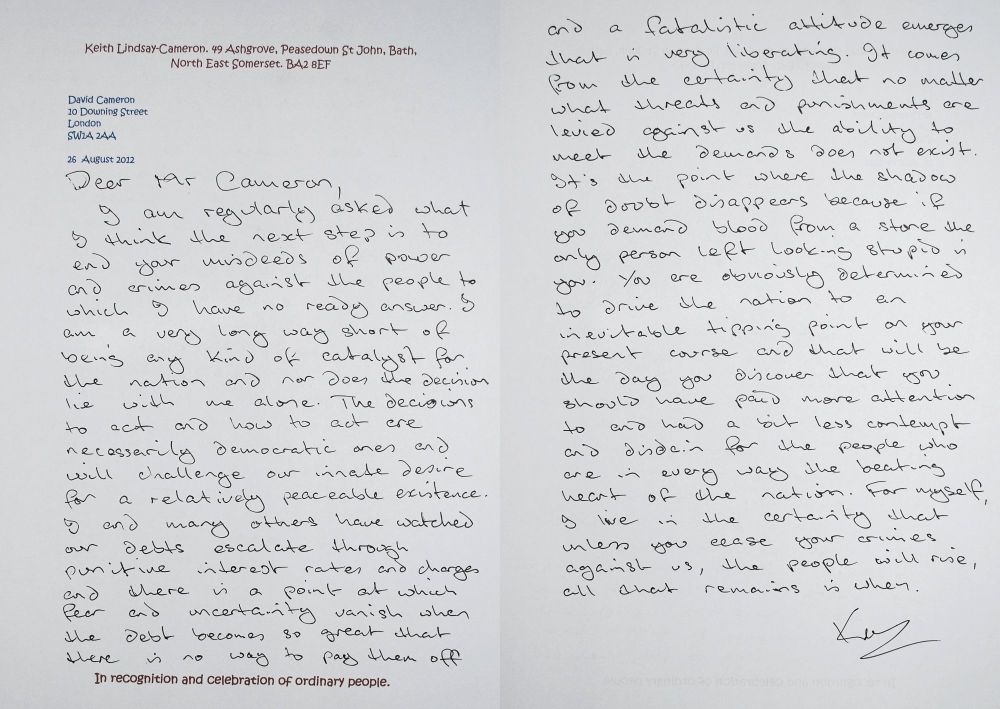 Keith Lindsay-Cameron. 49 Ashgrove, Peasedown St John, Bath,
North East Somerset. BA2 8EF
David Cameron
10 Downing Street
London
SW1A 2AA
26 August 2012
Dear Mr Cameron,
I am regularly asked what
I think the next step is to
end your misdeeds of power
and crimes against the people to
which I have no ready answer. I
am a very long way short of
being any kind of catalyst for
the nation and nor does the decision
lie with me alone. The decisions
to act and how to act are
necessarily democratic ones and
will challenge our innate desire
for a relatively peaceable existence.
I and many others have watched
our debts escalate through
punitive interest rates and charges
and there is a point at which
fear and uncertainty vanish when
the debt becomes so great that
there is no way to pay them off
In recognition and celebration of ordinary people.
and a fatalistic attitude emerges
that is very liberating. It comes
from the certainty that no matter
what threats and punishments are
levied against us the ability to
meet the demands does not exist.
It's the point where the shadow
of doubt disappears because if
you demand blood from a stone the
only person left looking stupid is
you. You are obviously determined
to drive the nation to an
inevitable tipping point on your
present course and that will be
the day you discover that you
should have paid more attention
to and had a bit less contempt
and disdain for the people who
are in every way the beating
heart of the nation. For myself,
I live in the certainty that
unless you cease your crimes
against us, the people will rise,
all that remains is when.